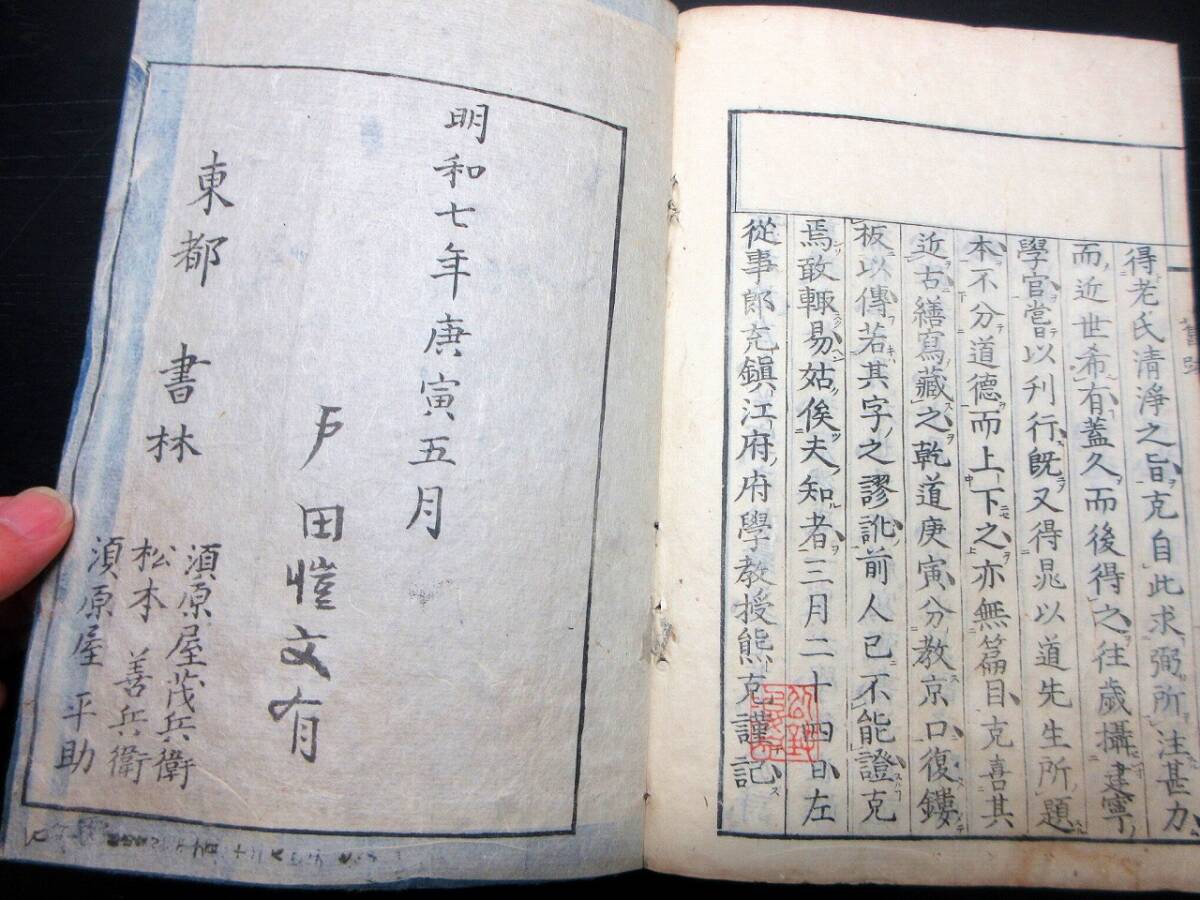 得老氏清淨之旨克自此求弼所注甚力
而近世希有蓋久而後得之往歲攝建寧
學官嘗以刊行旣又得晁以道先生所題
本不分道德而上下之亦無篇目克喜其
近古繕寫藏之乾道庚寅分教京口復鏤
板以傳若其字之謬訛前人已不能證克
焉敢輙易姑俟夫知者三月二十四日左
從事郎充鎭江府府學教授熊克謹記
明和七年庚寅五月
戶田愷文有
東都書林
湏原屋茂兵衛
松本善兵衛
湏原屋平助